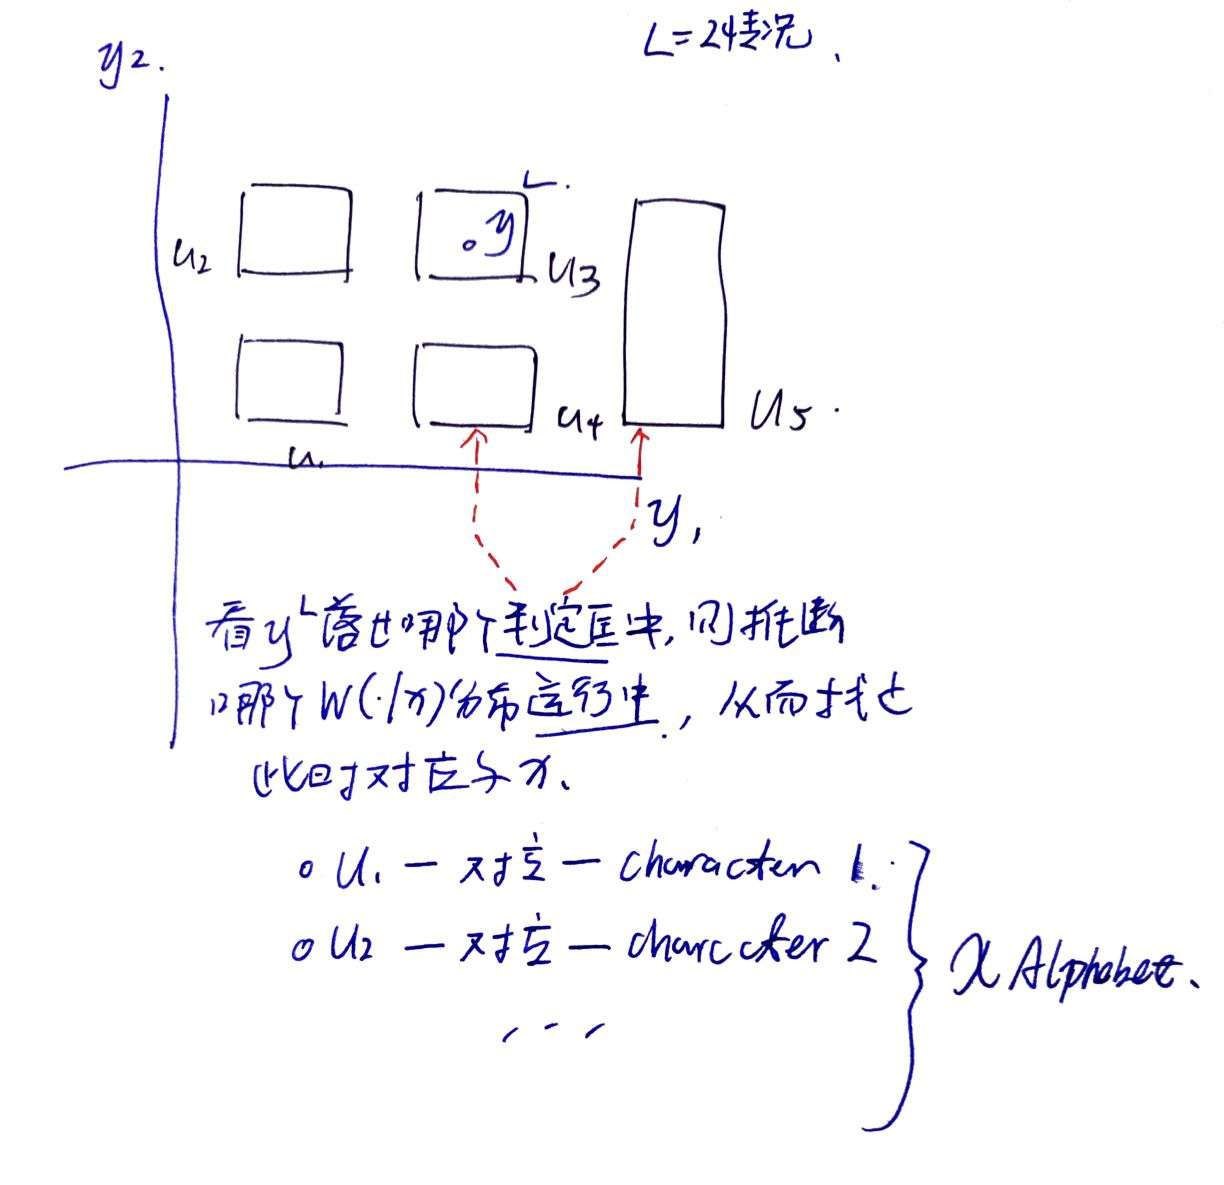 L=2情况.
y2.
L.
y
u2
u3
u4
u5.
u1
y1
看y^L落在哪个判定区中,则推断
哪个W(·|x)分布运行中,从而找出
此时对应的x.
o U1 — 对应 — character 1.
o U2 — 对应 — character 2
X Alphabet.
...